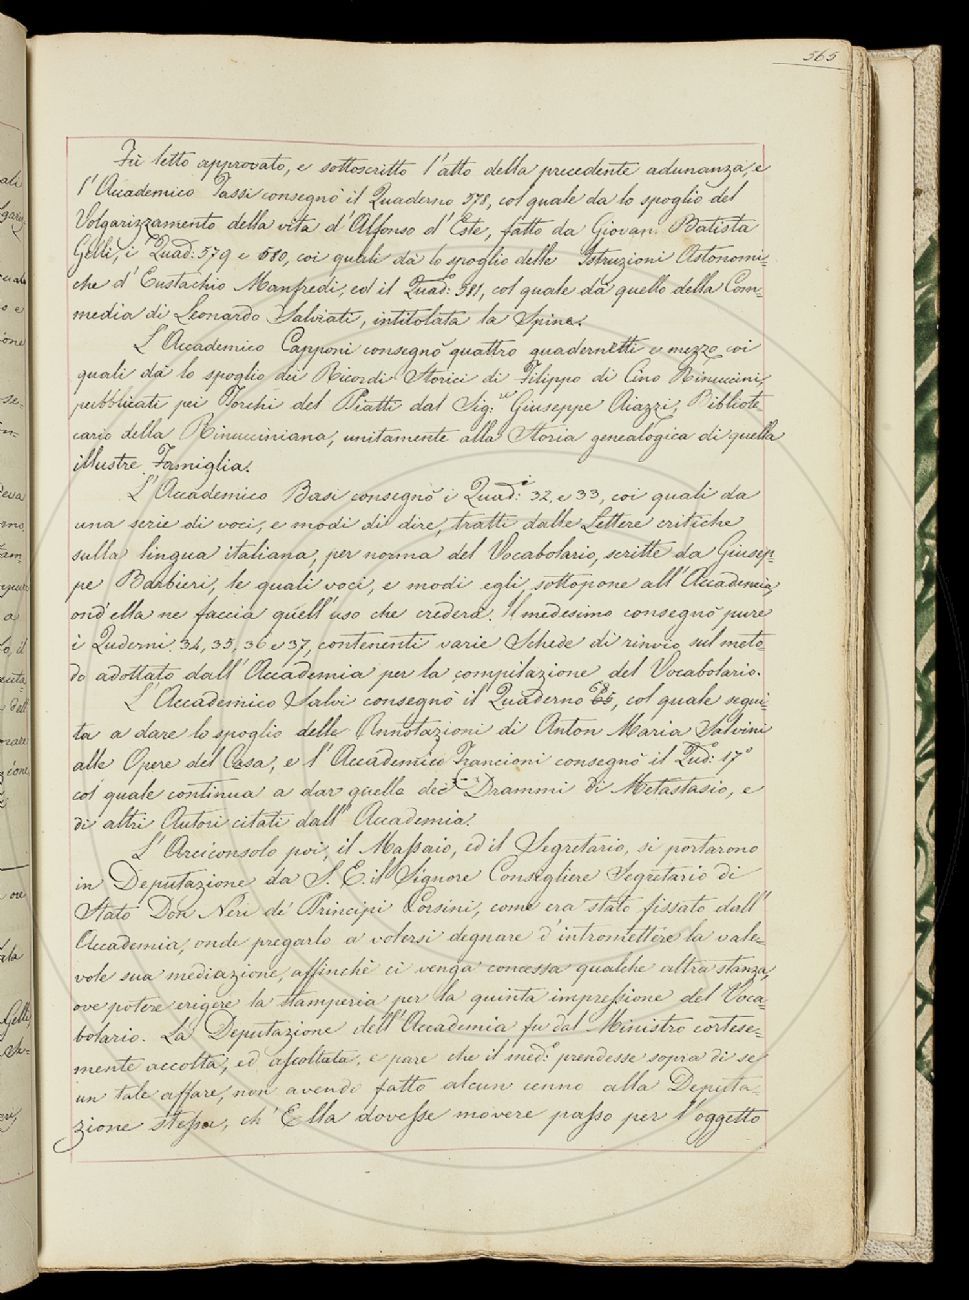 565
Fù letto approvato, e sottoscritto l'atto della precedente adunanza, e
l'Accademico Tassi consegnò il Quaderno 578, col quale dà lo spoglio del
Volgarizzamento della vita d'Alfonso d'Este, fatto da Giovan: Batista
Gelli, i Quad: 579 e 580, coi quali dà lo spoglio delle Istruzioni Astonomi=
che d'Eustachio Manfredi, ed il Quad: 581, col quale dà quello della Com=
media di Leonardo Salviati, intitolata la Spina.
L'Accademico Capponi consegnò quattro quadernetti e mezzo coi
quali dà lo spoglio dei Ricordi Storici di Filippo di Cino Rinuccini,
pubblicati pei Torchi del Piatti dal Sig:re Giuseppe Aiazzi, Bibliote=
cario della Rinucciniana, unitamente alla Storia genealogica di quella
illustre Famiglia.
L'Accademico Basi consegnò i Quad:i 32, e 33, coi quali da
una serie di voci, e modi di dire, tratti dalle Lettere critiche
sulla lingua italiana, per norma del Vocabolario, scritte da Giusep=
pe Barbieri, le quali voci, e modi egli sottopone all'Accademia,
ond'ella ne faccia quell'uso che crederà. Il medesimo consegnò pure
i Quderni 34, 35, 36 e 37, contenenti varie Schede di rinvio sul meto=
do adottato dall'Accademia per la compilazione del Vocabolario.
L'Accademico Salvi consegnò il Quaderno, col quale segui=
ta a dare lo spoglio delle Annotazioni di Anton Maria Salvini
alle Opere del Casa, e l'Accademico Francioni consegnò il Qud:o 17°
col quale continua a dar quello dei Drammi di Metastasio, e
di altri Autori citati dall'Accademia.
L'Arciconsolo poi, il Massaio, ed il Segretario, si portarono
in Deputazione da S. E. il Signore Consigliere Segretario di
Stato Don Neri de' Principi Corsini, come era stato fissato dall'
Accademia, onde pregarlo a volersi degnare d'intromettere la vale=
vole sua mediazione, affinchè ci venga concessa qualche altra stanza,
ove potere erigere la stamperia per la quinta impressione del Voca=
bolario. La Deputazione dell'Accademia fu dal Ministro cortese=
mente accolta, ed ascoltata, e pare che il med:o prendesse sopra di se
un tale affare, non avendo fatto alcun cenno alla Deputa=
zione stessa, ch'Ella dovesse movere passo per l'oggetto